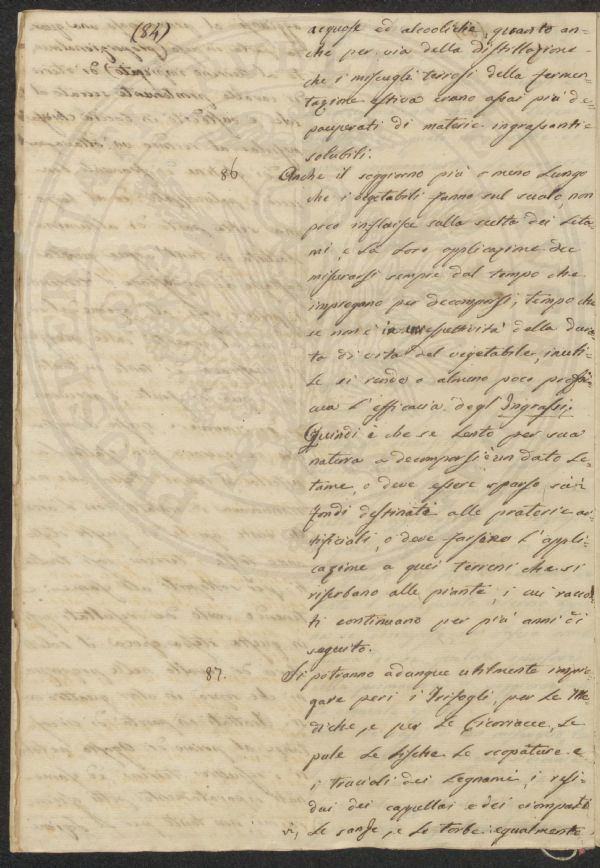 (84)
acquose ed alcooliche, quanto an=
che per via della distillazione
che i miscugli terrosi della fermen=
tazione estiva erano assai più de=
pauperati di materie ingrassanti e
solubili.
86 Anche il soggiorno più o meno lungo
che i vegetabili fanno sul suolo, non
poco influisce sulla scelta dei leta=
mi, e la loro applicazione dee
misurarsi sempre dal tempo che
impiegano per decomporsi; tempo che
se non è in rispettività della dura=
ta di vita del vegetabile, inuti=
le si rende o almeno poco profi=
cua l'efficacia degl'Ingrassi.
Quindi è che se lento per sua
natura a decomporsi è un dato le=
tame, o deve essere sparso su i
fondi destinati alle praterie ar=
tificiali, o deve farsene l'appli=
cazione a quei terreni che si
riserbano alle piante, i cui raccol=
ti continuano per più anni di
seguito.
87. Si potranno adunque utilmente impie=
gare peri i Trifogli, per le Me
diche, e per le Cicoriacee, le
pule le lische le scopature e
i trucioli dei legnami, i resi=
dui dei cappellai e dei
vi, le sanse, e le torbe: egualmente